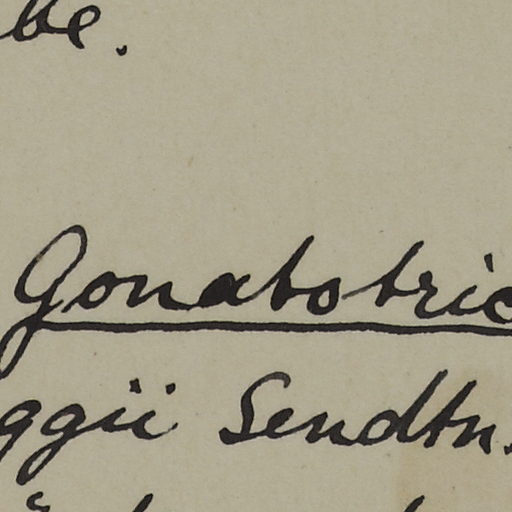 be.
Gonatotric
ggii Sendtn.